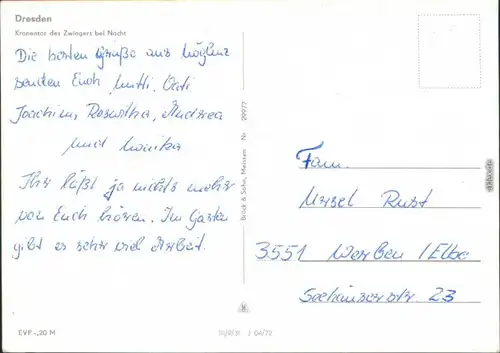 Dresden
Kronentor des Zwingers bei Nacht
Die besten Grüße aus
senden Euch Mutti, Vati
Joachim, Roswitha, Andrea
und Monika
Ihr läßt ja nichts mehr
von Euch hören. Im Garten
gibt es sehr viel Arbeit.
Brück & Sohn, Meissen Nr 29977
Fam.
Ursel Rust
3551 Werben /Elbe
Seehäuserstr. 23
EVP -,20 M
III/9/31 J 04/72